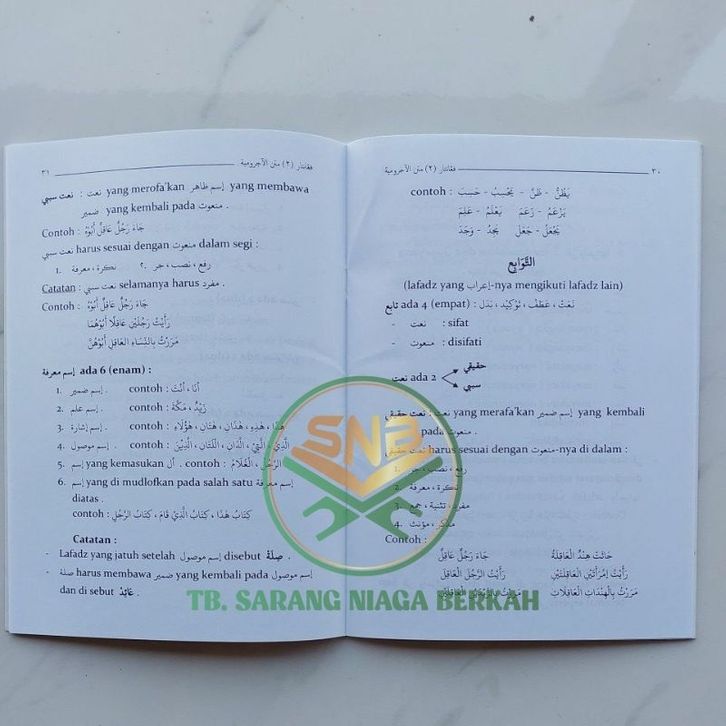 ٣٠ فقانتار (٢) متن الآجرومية
contoh : حَسِبَ - يَحْسِبُ - ظَنَّ - يَظُنُّ
عَلِمَ - يَعْلَمُ - زَعَمَ - يَزْعُمُ
وَجَدَ - يَجِدُ - جَعَلَ - يَجْعَلُ
التَّوَابِع
(lafadz yang إعراب-nya mengikuti lafadz lain)
تابع ada 4 (empat) : نَعْتٌ ، عَطْفٌ ، تَوْكِيْد ، بَدَل
- نعت : sifat
- منعوت : disifati
نعت ada 2
حقيقي
سببي
نعت حقيقي : نعت yang merafa'kan إسم ضمير yang kembali
pada منعوت .
نعت حقيقي harus sesuai dengan منعوت-nya di dalam :
1. رفع ، نصب ، جر
2. نكرة ، معرفة
3. مفرد ، تثنية ، جمع
4. مذكر ، مؤنث
Contoh :
جَاءَ رَجُلٌ عَاقِلٌ جَائَتْ هِنْدٌ الْعَاقِلَةُ
رَأَيْتُ الرَّجُلَ الْعَاقِلَ رَأَيْتُ إِمْرَأَتَيْنِ الْعَاقِلَتَيْنِ
مَرَرْتُ بِالزَّيْدَيْنِ الْعَاقِلَيْنِ مَرَرْتُ بِالْهِنْدَاتِ الْعَاقِلَاتِ
٣١ فقانتار (٢) متن الآجرومية
نعت سببي : نعت yang merofa'kan إسم ظاهر yang membawa
ضمير yang kembali pada منعوت .
Contoh : جَاءَ رَجُلٌ عَاقِلٌ أَبُوْهُ
نعت سببي harus sesuai dengan منعوت dalam segi :
1. رفع ، نصب ، جر 2. نكرة ، معرفة
Catatan : نعت سببي selamanya harus مفرد .
Contoh : جَاءَ رَجُلٌ عَاقِلٌ أَبُوْهُ
رَأَيْتُ رَجُلَيْنِ عَاقِلًا أَبُوْهُمَا
مَرَرْتُ بِالنِّسَاءِ الْعَاقِلِ أَبُوْهُنَّ
إسم معرفة ada 6 (enam) :
1. إسم ضمير . contoh : أَنَا ، أَنْتَ
2. إسم علم . contoh : زَيْدٌ ، مَكَّةَ
3. إسم إشارة . contoh : هَذَا ، هَذِهِ ، هَذَانِ ، هَتَانِ ، هَؤُلَاءِ
4. إسم موصول . contoh : الَّذِي ، الَّتِيْ ، الَّذَانِ ، اللَّتَانِ ، الَّذِيْنَ
5. إسم yang kemasukan أل . contoh : الرَّجُلُ ، الْغُلَامُ
6. إسم yang di mudlofkan pada salah satu إسم معرفة
diatas .
contoh : كِتَابُ هَذَا ، كِتَابُ الَّذِيْ قَامَ ، كِتَابُ الرَّجُلِ
Catatan :
- Lafadz yang jatuh setelah إسم موصول disebut صِلَةٌ .
- صلة harus membawa ضمير yang kembali pada إسم موصول
dan di sebut عَائِدْ .
SNB
TB. SARANG NIAGA BERKAH